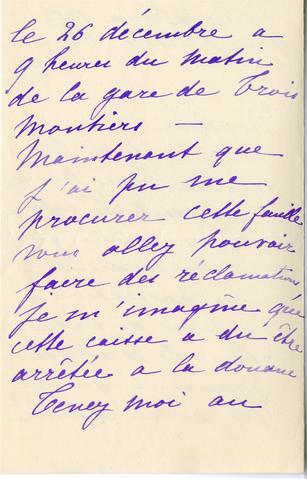 le 26 décembre a
9 heures du matin
de la gare de Trois
Moutiers —
Maintenant que
j'ai pu me
procurer cette feuille
vous allez pouvoir
faire des réclamations
je m'imagine que
cette caisse a du être
arrêtée a la douane
Tenez moi au